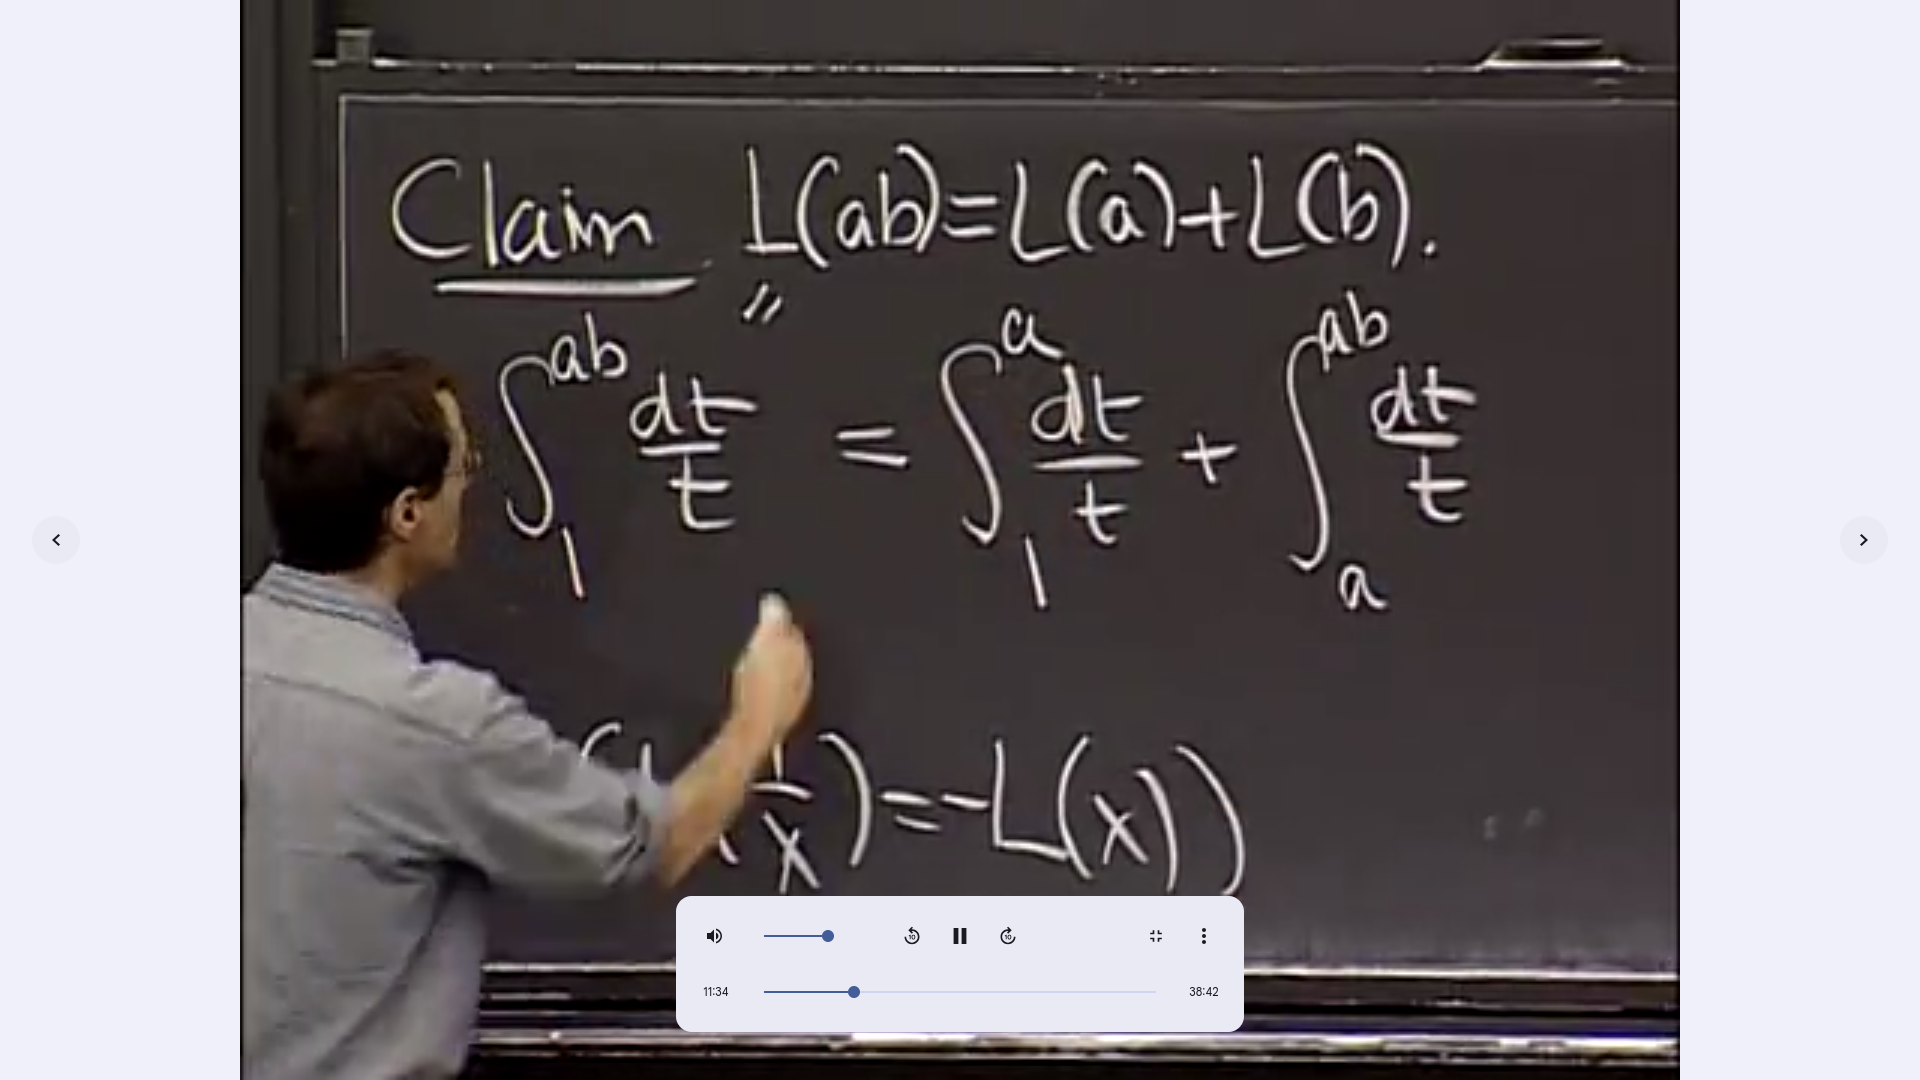 Claim L(ab)=L(a)+L(b).
〃
∫₁ᵃᵇ dt/t = ∫₁ᵃ dt/t + ∫ₐᵃᵇ dt/t
1/x)=-L(x))
10 10
11:34 38:42